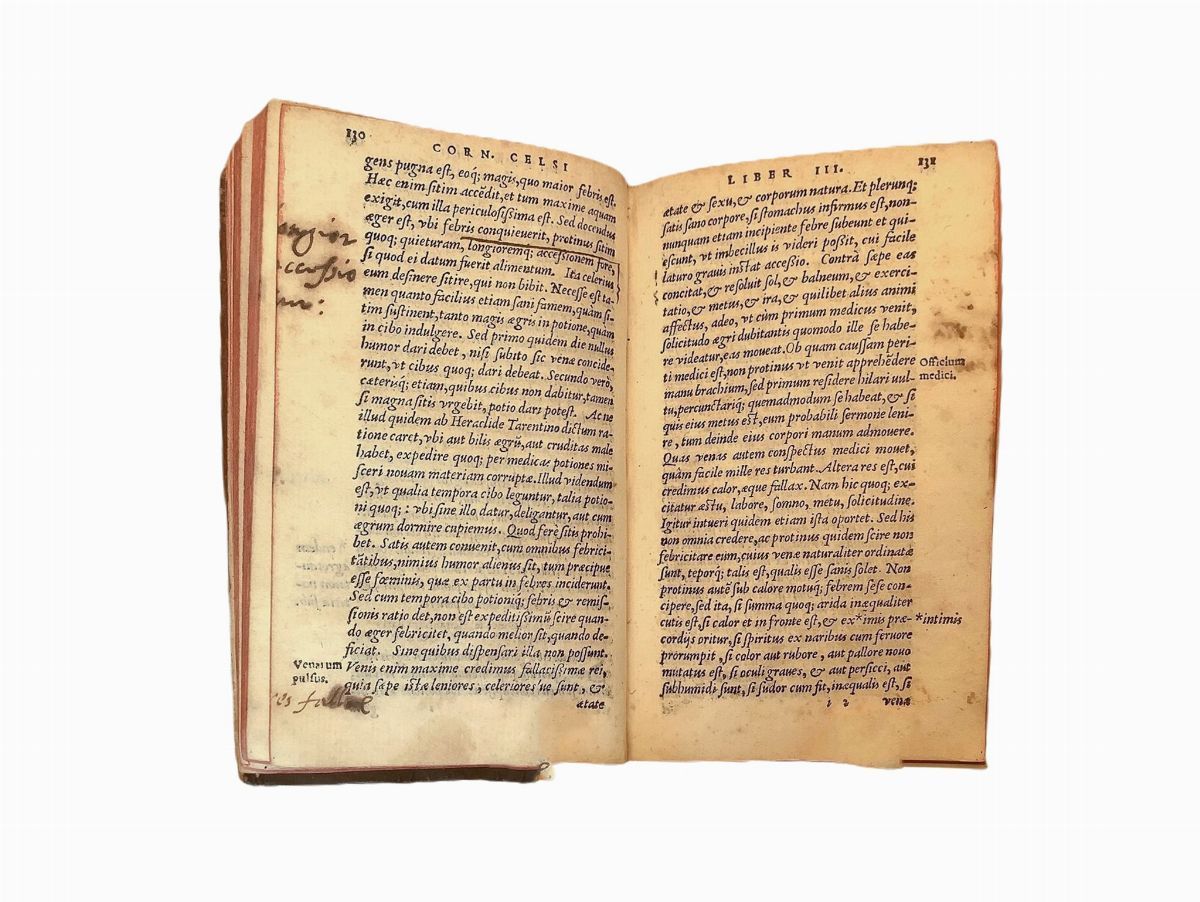 130
CORN. CELSI
gens pugna eſt, eoq; magis, quo maior febris eſt.
Hæc enim ſitim accēdit, et tum maxime aquam
exigit, cum illa periculoſiſsima eſt. Sed docendus
æger eſt, vbi febris conquieuerit, protinus ſitim
quoq; quieturam, longioremq; acceſsionem fore,
ſi quod ei datum fuerit alimentum. Ita celerius
eum deſinere ſitire, qui non bibit. Neceſſe eſt ta-
men quanto facilius etiam ſani famem, quàm ſi-
tim ſuſtinent, tanto magis ægris in potione, quàm
in cibo indulgere. Sed primo quidem die nullus
humor dari debet, niſi ſubito ſic venæ concide-
runt, vt cibus quoq; dari debeat. Secundo verò,
cæteriſq; etiam, quibus cibus non dabitur, tamen
ſi magna ſitis vrgebit, potio dari poteſt. Ac ne
illud quidem ab Heraclide Tarentino dictum ra-
tione caret, vbi aut bilis ægrū, aut cruditas male
habet, expedire quoq; per medicas potiones mi-
ſceri nouam materiam corruptæ. Illud videndum
eſt, vt qualia tempora cibo leguntur, talia potio-
ni quoq; : vbi ſine illo datur, deligantur, aut cum
ægrum dormire cupiemus. Quod ferè ſitis prohi-
bet. Satis autem conuenit, cum omnibus febrici-
tātibus, nimius humor alienus ſit, tum præcipue
eſſe fœminis, quæ ex partu in febres inciderunt.
Sed cum tempora cibo potioniq; febris & remiſ-
ſionis ratio det, non eſt expeditiſsimū ſcire quan-
do æger febricitet, quando melior ſit, quando de-
ficiat. Sine quibus diſpenſari illa non poſſunt.
Venis enim maxime credimus fallaciſsimæ rei,
quia ſæpe iſtæ leniores, celeriores ve ſunt, &
ætate
longior
acceſsio
Venarum
pulſus.
131
LIBER III.
ætate & ſexu, & corporum natura. Et plerunq;
ſatis ſano corpore, ſi ſtomachus infirmus eſt, non-
nunquam etiam incipiente febre ſubeunt et qui-
eſcunt, vt imbecillus is videri poſsit, cui facile
laturo grauis inſtat acceſsio. Contrà ſæpe eas
concitat, & reſoluit ſol, & balneum, & exerci-
tatio, & metus, & ira, & quilibet alius animi
affectus, adeo, vt cùm primum medicus venit,
ſolicitudo ægri dubitantis quomodo ille ſe habe-
re videatur, eas moueat. Ob quam cauſſam peri-
ti medici eſt, non protinus vt venit apprehēdere
manu brachium, ſed primum reſidere hilari vul-
tu, percunctariq; quemadmodum ſe habeat, & ſi
quis eius metus eſt, eum probabili ſermone leni-
re, tum deinde eius corpori manum admouere.
Quas venas autem conſpectus medici mouet,
quàm facile mille res turbant. Altera res eſt, cui
credimus calor, æque fallax. Nam hic quoq; ex-
citatur æſtu, labore, ſomno, metu, ſolicitudine.
Igitur intueri quidem etiam iſta oportet. Sed his
non omnia credere, ac protinus quidem ſcire non
febricitare eum, cuius venæ naturaliter ordinatæ
ſunt, teporq; talis eſt, qualis eſſe ſanis ſolet. Non
protinus autē ſub calore motuq; febrem ſeſe con-
cipere, ſed ita, ſi ſumma quoq; arida inæqualiter
cutis eſt, ſi calor et in fronte eſt, & ex*imis præ-
cordijs oritur, ſi ſpiritus ex naribus cum feruore
prorumpit, ſi color aut rubore, aut pallore nouo
mutatus eſt, ſi oculi graues, & aut perſicci, aut
ſubhumidi ſunt, ſi ſudor cum fit, inæqualis eſt, ſi
i 2 venæ
Officium
medici.
*intimis